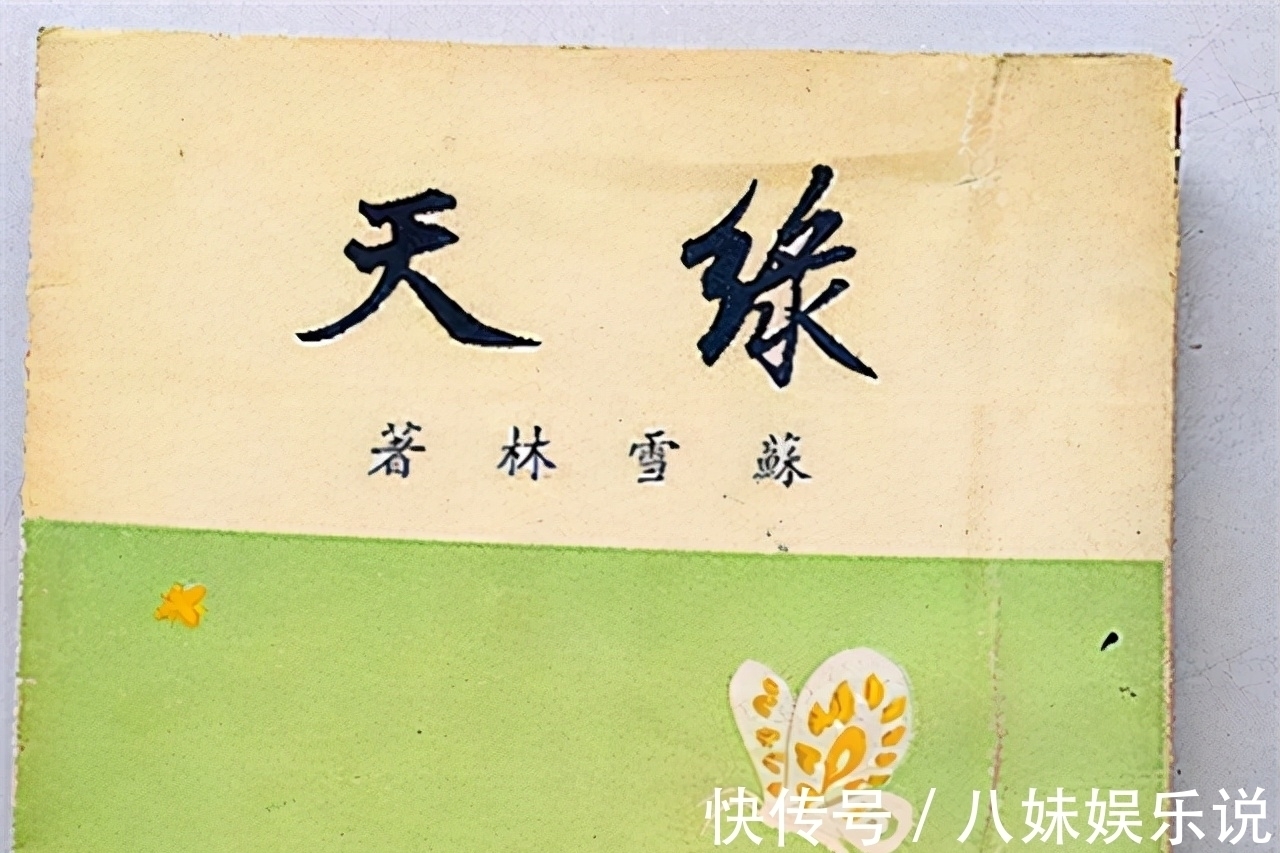 綠天
蘇雪林著
快传号/八妹娱乐说